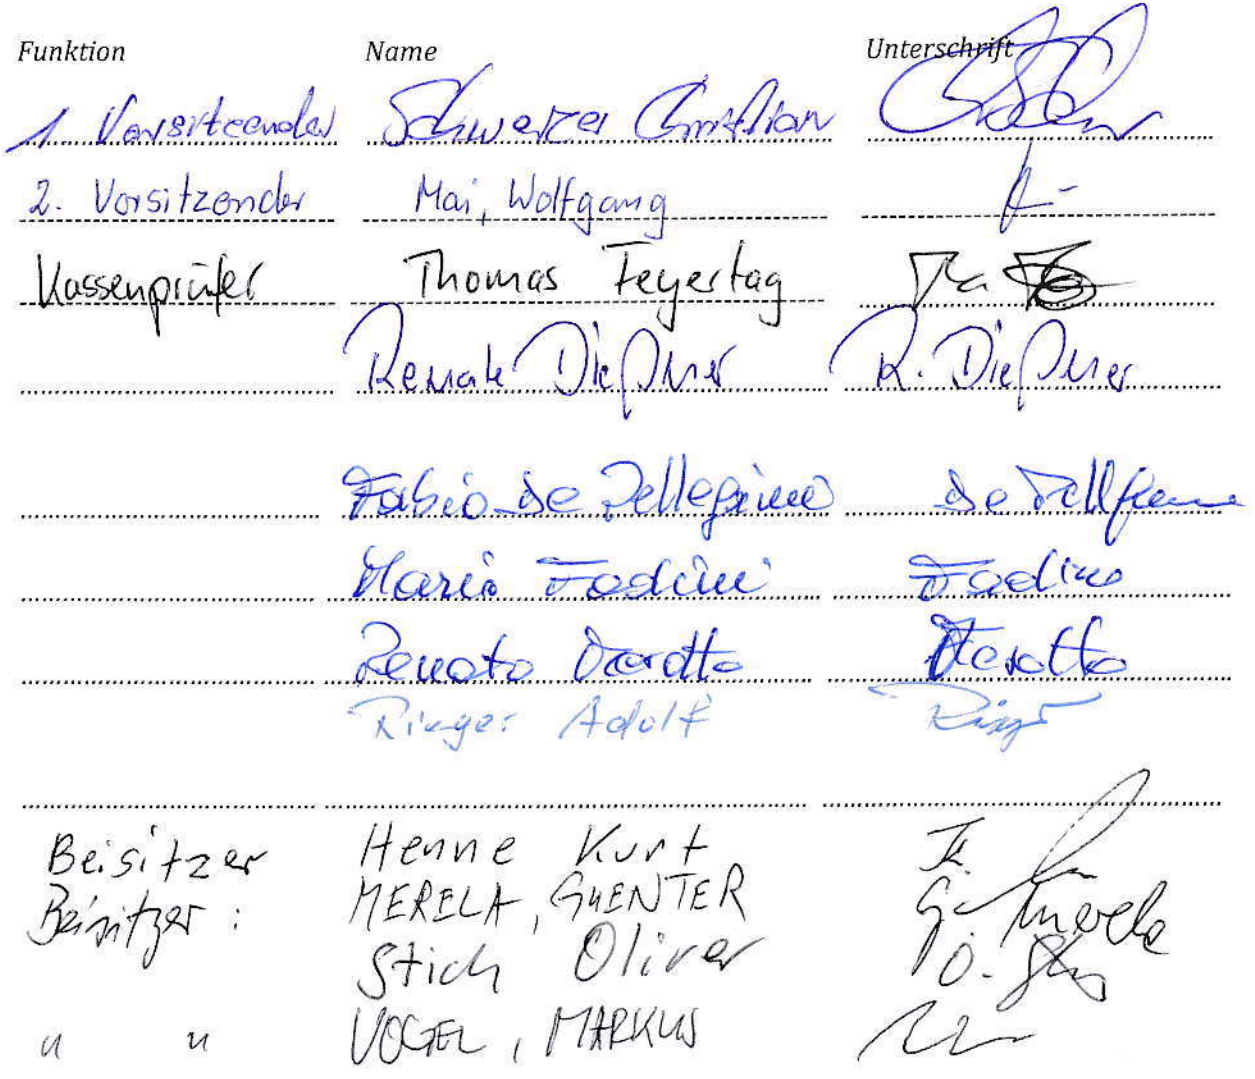 Funktion Name Unterschrift
1. Vorsitzender Schweizer Christian
2. Vorsitzender Mai, Wolfgang
Kassenprüfer Thomas Feyertag
Renate Dießner R. Dießner
Fabio De Pellegrini De
Mario Fadini Fadini
Renato
Ringer Adolf
Beisitzer Henne Kurt
Beisitzer: MERELA, GUENTER G. Merela
Stich Oliver O.
" " VOGEL, MARKUS